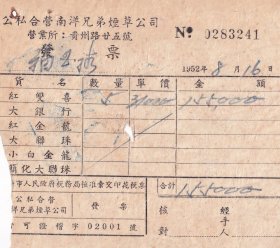 公私合營南洋兄弟煙草公司
營業所：貴州路廿五號
發 票
№ 0283241
1952年8月16日
貨名 數量 單價 金額
紅雙喜 5 31000 155000
大銀行
紅金龍
大聯珠
小白金龍
簡化大聯珠
市人民政府稅務局核准彙交印花稅票
合計 155000
公私合營
南洋兄弟煙草公司
發票
可證楷字02001號
核對 經手人